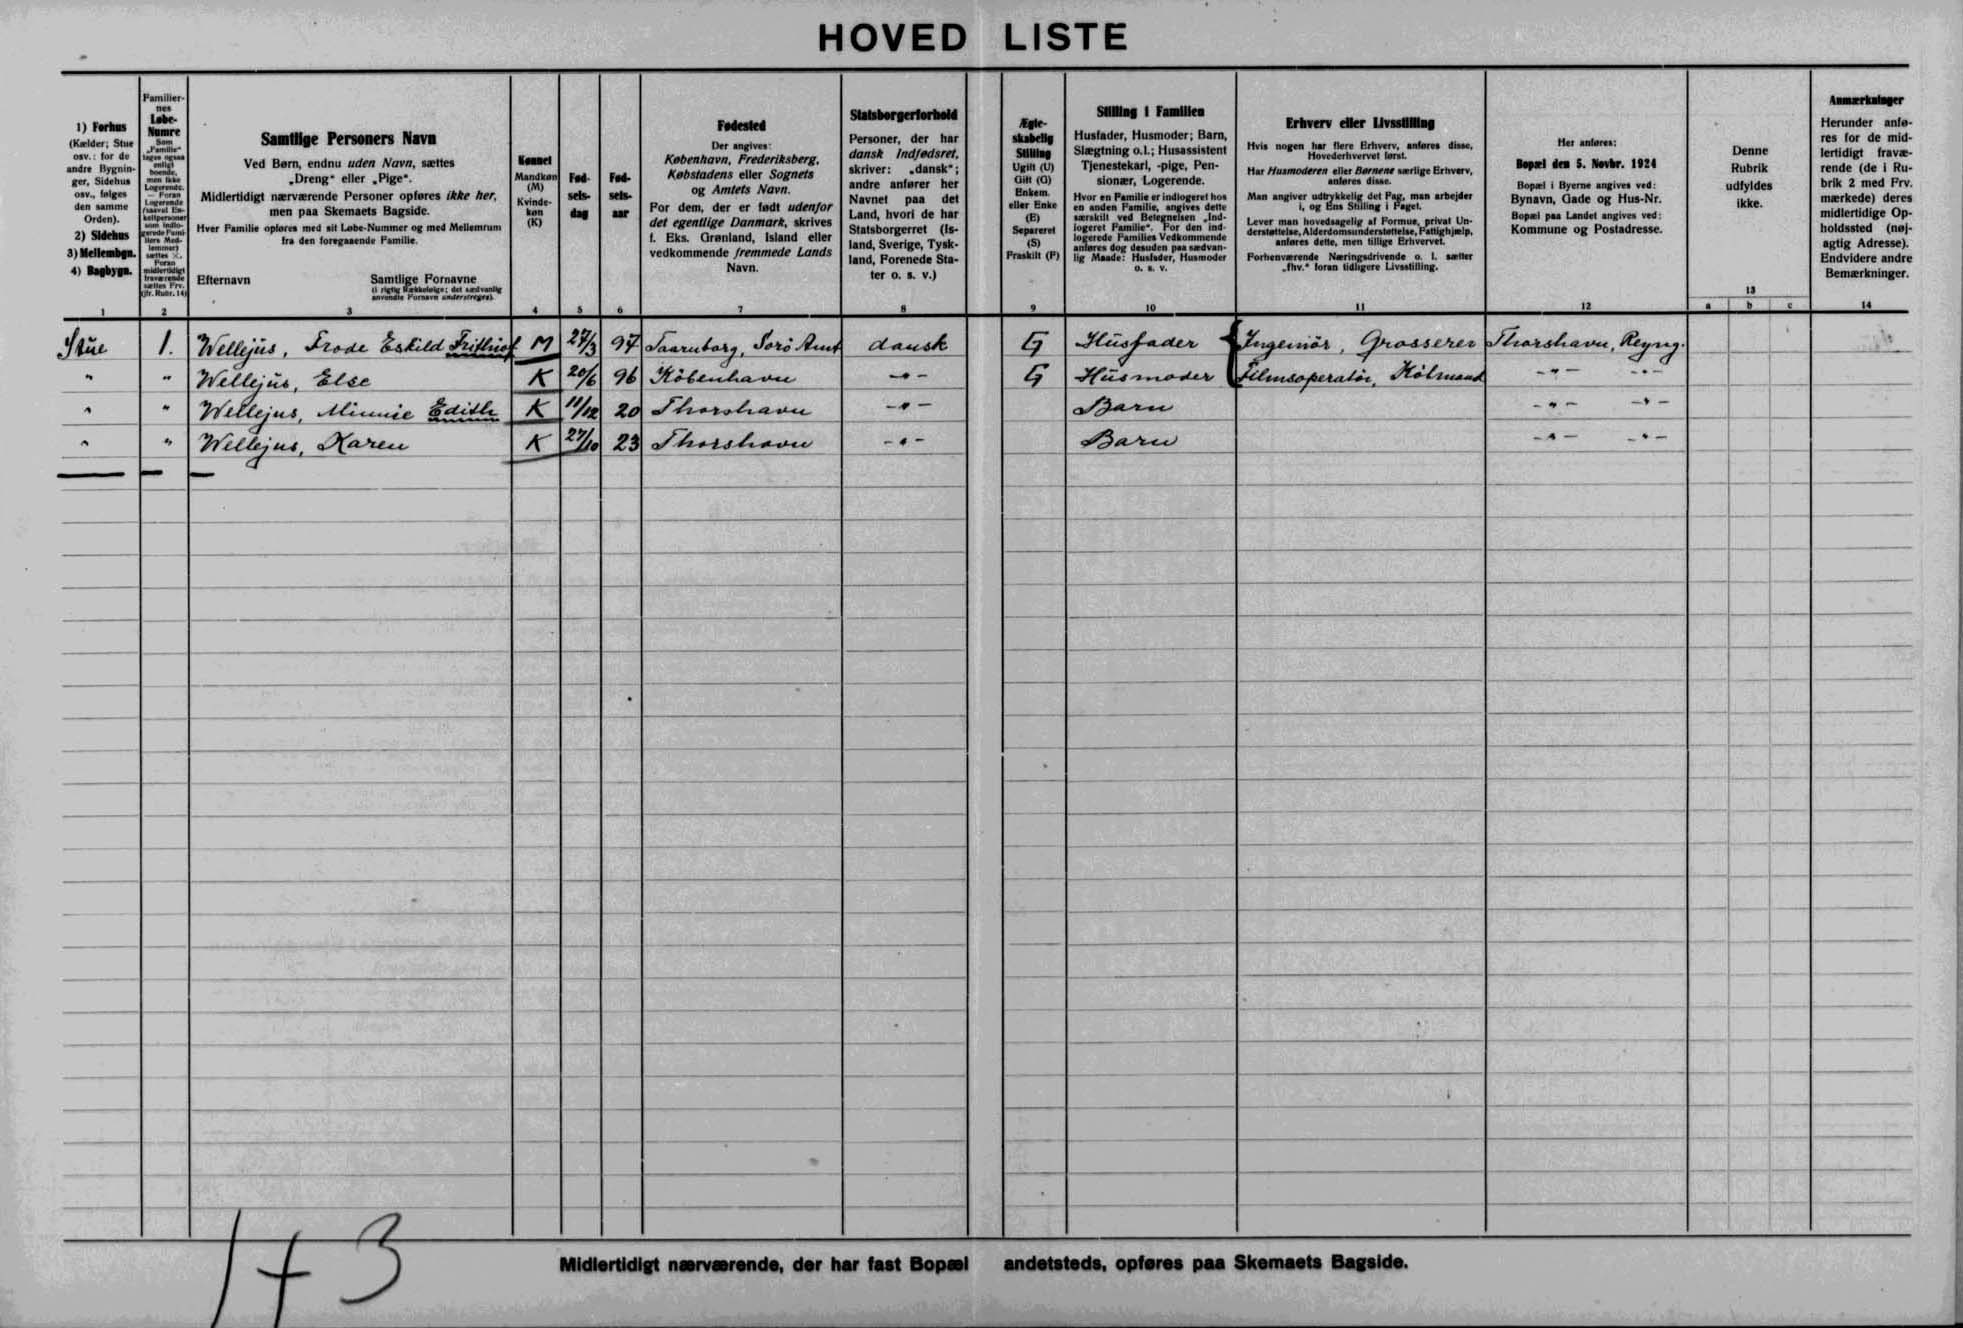 HOVED LISTE
1) Forhus
(Kælder; Stue
osv.: for de
andre Bygnin-
ger, Sidehus
osv., følges
den samme
Orden).
2) Sidehus
3) Mellembgn.
4) Bagbygn.
1
Familier-
nes
Løbe-
Numre
Som
„Familie“
tages ogsaa
enligt
boende,
men ikke
Logerende.
— Foran
Logerende
(saavel En-
keltpersoner
som indlo-
gerede Fami-
liers Med-
lemmer)
sættes ×.
Foran
midlertidigt
fraværende
sættes Frv.
(jfr. Rubr. 14)
2
Samtlige Personers Navn
Ved Børn, endnu uden Navn, sættes
„Dreng“ eller „Pige“.
Midlertidigt nærværende Personer opføres ikke her,
men paa Skemaets Bagside.
Hver Familie opføres med sit Løbe-Nummer og med Mellemrum
fra den foregaaende Familie.
Efternavn Samtlige Fornavne
(i rigtig Rækkefølge; det sædvanlig
anvendte Fornavn understreges).
3
Kønnet
Mandkøn
(M)
Kvinde-
køn
(K)
4
Fød-
sels-
dag
5
Fød-
sels-
aar
6
Fødested
Der angives:
København, Frederiksberg,
Købstadens eller Sognets
og Amtets Navn.
For dem, der er født udenfor
det egentlige Danmark, skrives
f. Eks. Grønland, Island eller
vedkommende fremmede Lands
Navn.
7
Statsborgerforhold
Personer, der har
dansk Indfødsret,
skriver: „dansk“;
andre anfører her
Navnet paa det
Land, hvori de har
Statsborgerret (Is-
land, Sverige, Tysk-
land, Forenede Sta-
ter o. s. v.)
8
Ægte-
skabelig
Stilling
Ugift (U)
Gift (G)
Enkem.
eller Enke
(E)
Separeret
(S)
Fraskilt (F)
9
Stilling i Familien
Husfader, Husmoder; Barn,
Slægtning o.l.; Husassistent
Tjenestekarl, -pige, Pen-
sionær, Logerende.
Hvor en Familie er indlogeret hos
en anden Familie, angives dette
særskilt ved Betegnelsen „Ind-
logeret Familie“. For den ind-
logerede Families Vedkommende
anføres dog desuden paa sædvan-
lig Maade: Husfader, Husmoder
o. s. v.
10
Erhverv eller Livsstilling
Hvis nogen har flere Erhverv, anføres disse,
Hovederhvervet først.
Har Husmoderen eller Børnene særlige Erhverv,
anføres disse.
Man angiver udtrykkelig det Fag, man arbejder
i, og Ens Stilling i Faget.
Lever man hovedsagelig af Formue, privat Un-
derstøttelse, Alderdomsunderstøttelse, Fattighjælp,
anføres dette, men tillige Erhvervet.
Forhenværende Næringsdrivende o. l. sætter
„fhv.“ foran tidligere Livsstilling.
11
Her anføres:
Bopæl den 5. Novbr. 1924
Bopæl i Byerne angives ved:
Bynavn, Gade og Hus-Nr.
Bopæl paa Landet angives ved:
Kommune og Postadresse.
12
Denne
Rubrik
udfyldes
ikke.
13
a b c
Anmærkninger
Herunder anfø-
res for de mid-
lertidigt fravæ-
rende (de i Ru-
brik 2 med Frv.
mærkede) deres
midlertidige Op-
holdssted (nøj-
agtig Adresse).
Endvidere andre
Bemærkninger.
14
Stue 1. Wellejus, Frode Eskild Frithiof M 27/3 97 Taarnborg, Sorø Amt dansk G Husfader { Ingeniør, Grosserer Thorshavn, Reyng.
" " Wellejus, Else K 20/6 96 København -"- G Husmoder Filmsoperatør, Købmand -"- -"-
" " Wellejus, Minnie Edith K 11/12 20 Thorshavn -"- Barn -"- -"-
" " Wellejus, Karen K 27/10 23 Thorshavn -"- Barn -"- -"-
Midlertidigt nærværende, der har fast Bopæl andetsteds, opføres paa Skemaets Bagside.
1+3